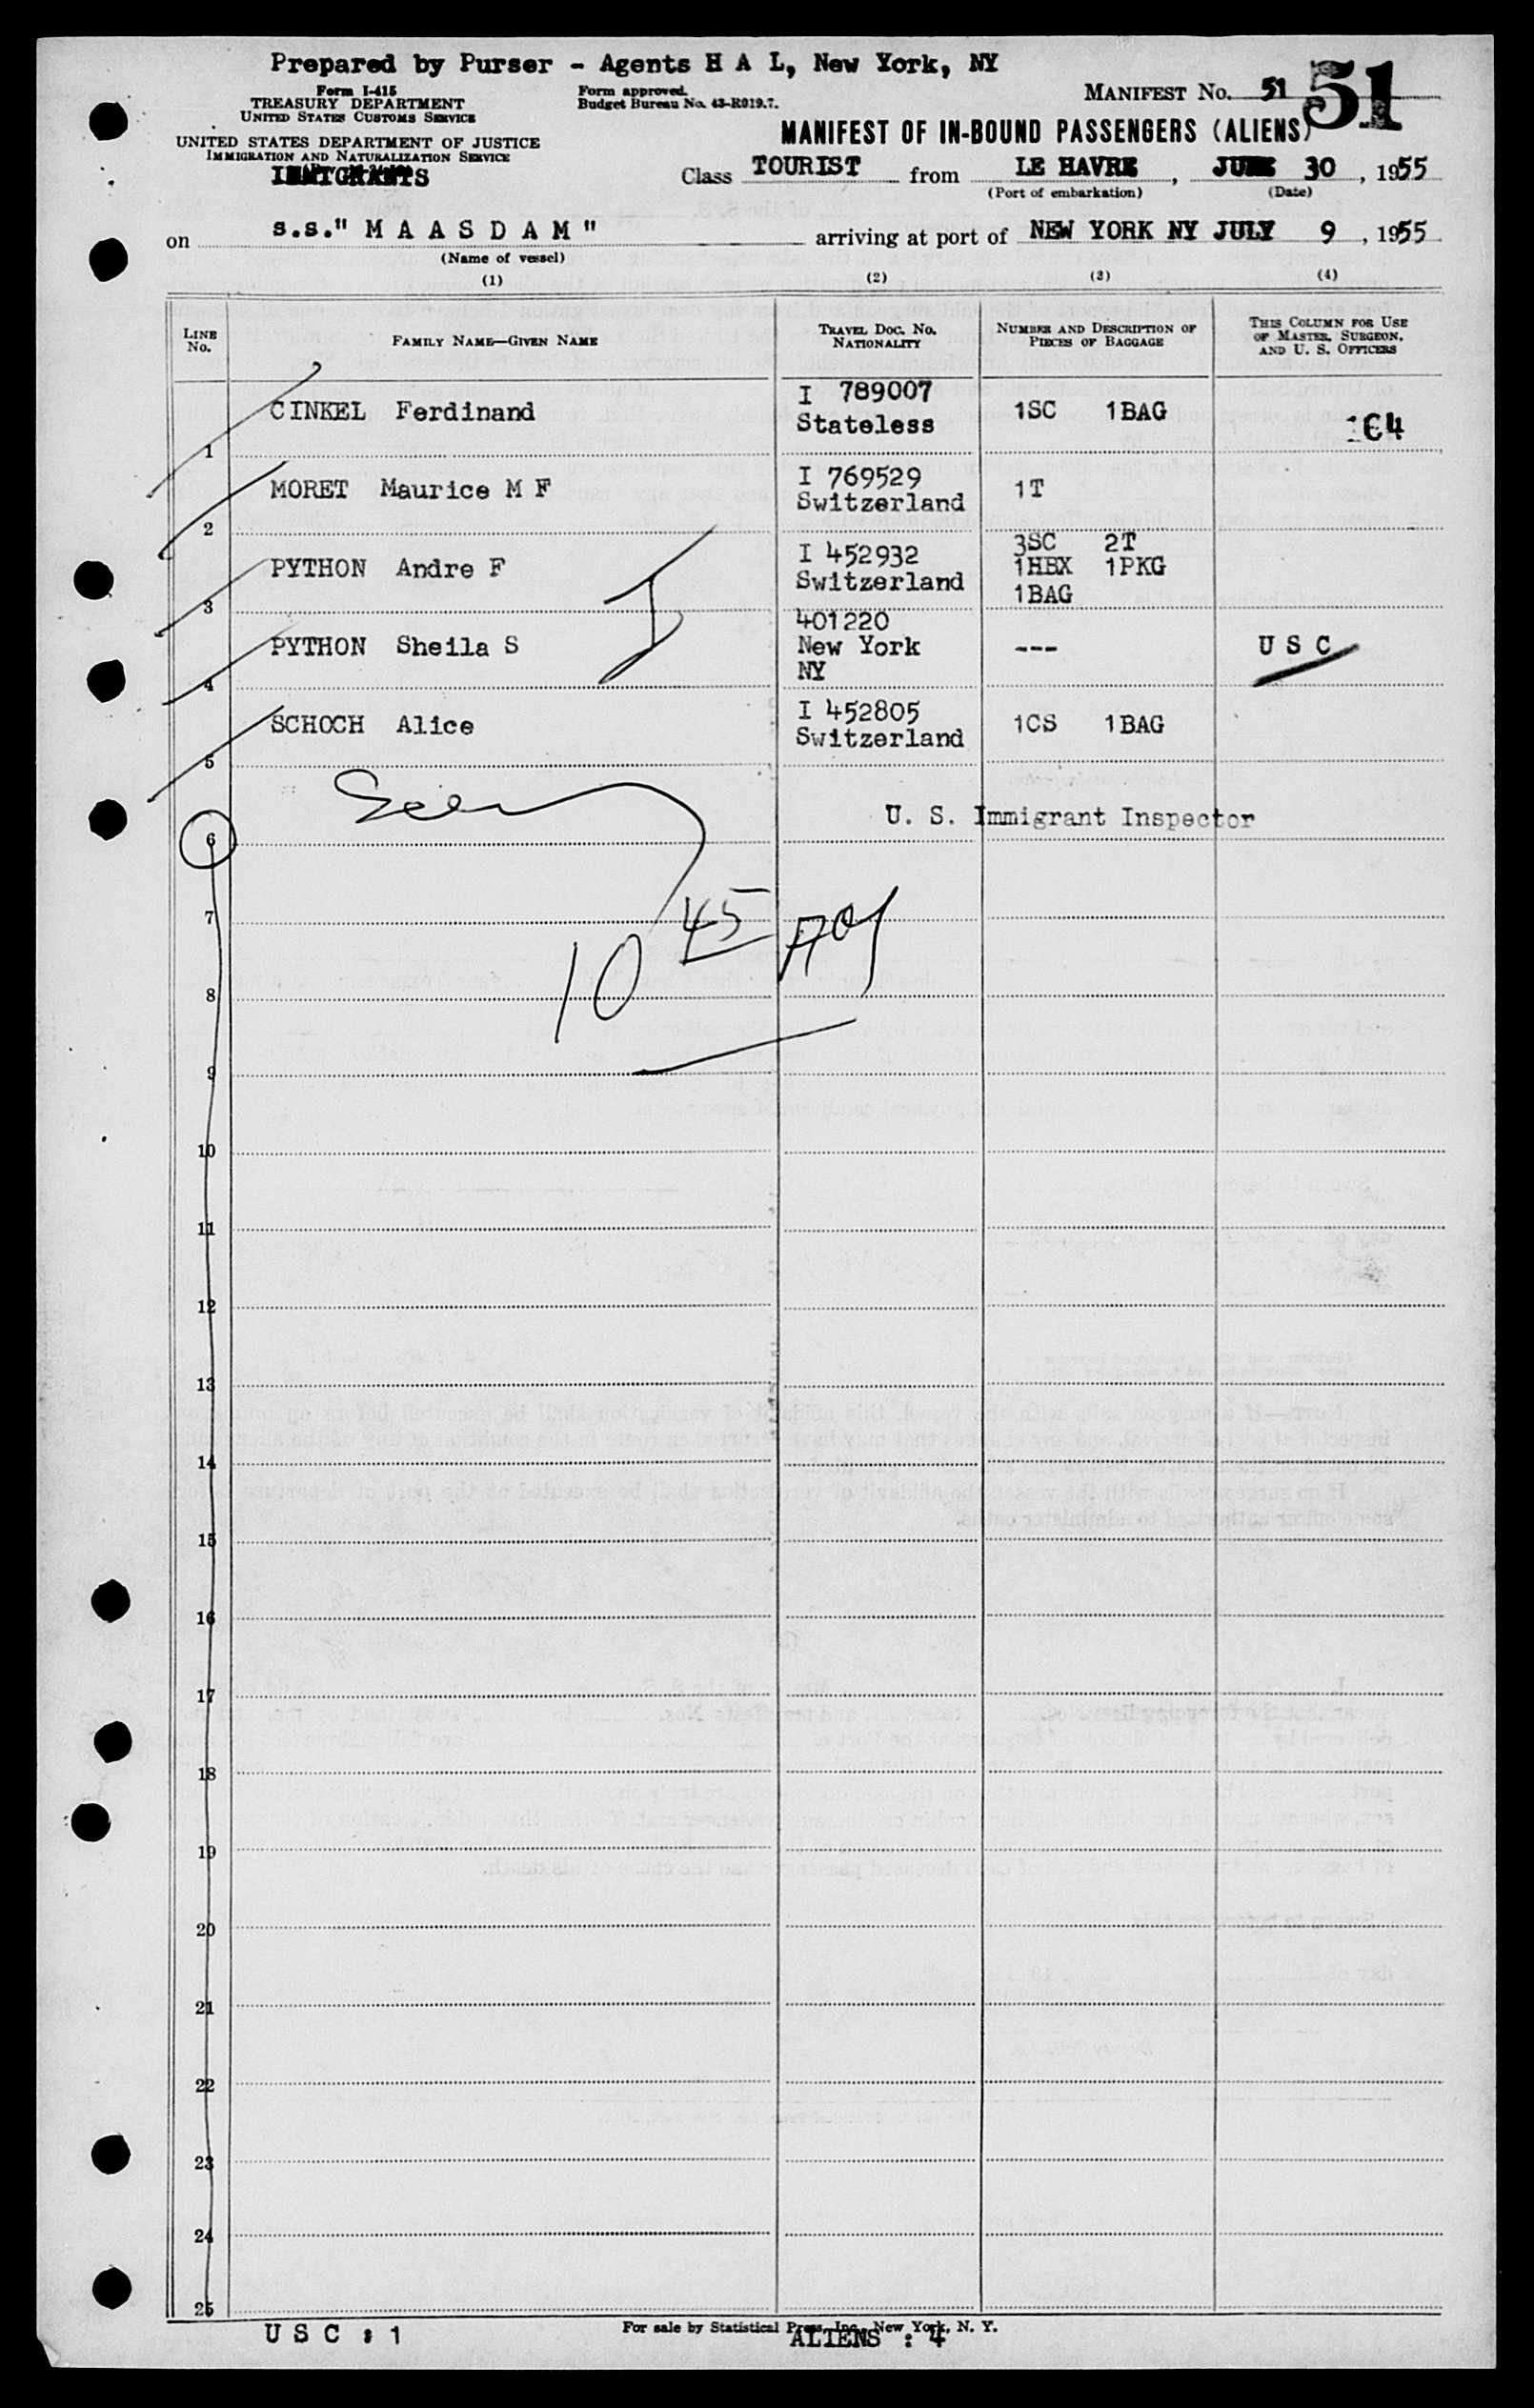 Prepared by Purser - Agents H A L, New York, NY
Form I-415
TREASURY DEPARTMENT
UNITED STATES CUSTOMS SERVICE
Form approved.
Budget Bureau No. 43-R019.7.
MANIFEST No. 51 51
UNITED STATES DEPARTMENT OF JUSTICE
IMMIGRATION AND NATURALIZATION SERVICE
IMMIGRANTS
MANIFEST OF IN-BOUND PASSENGERS (ALIENS)
Class TOURIST from LE HAVRE, JUNE 30, 1955
(Port of embarkation) (Date)
on s.s." M A A S D A M " arriving at port of NEW YORK NY JULY 9, 1955
(Name of vessel)
(1) (2) (3) (4)
LINE No. FAMILY NAME—GIVEN NAME TRAVEL DOC. NO. NATIONALITY NUMBER AND DESCRIPTION OF PIECES OF BAGGAGE THIS COLUMN FOR USE OF MASTER, SURGEON, AND U. S. OFFICERS
1 CINKEL Ferdinand I 789007 Stateless 1SC 1BAG
2 MORET Maurice M F I 769529 Switzerland 1T
3 PYTHON Andre F I 452932 Switzerland 3SC 2T 1HBX 1PKG 1BAG
4 PYTHON Sheila S 401220 New York NY --- U S C
5 SCHOCH Alice I 452805 Switzerland 1CS 1BAG
U. S. Immigrant Inspector
6
7
10 45
8
9
10
11
12
13
14
15
16
17
18
19
20
21
22
23
24
25
U S C : 1
For sale by Statistical Press, Inc., New York, N. Y.
ALIENS : 4